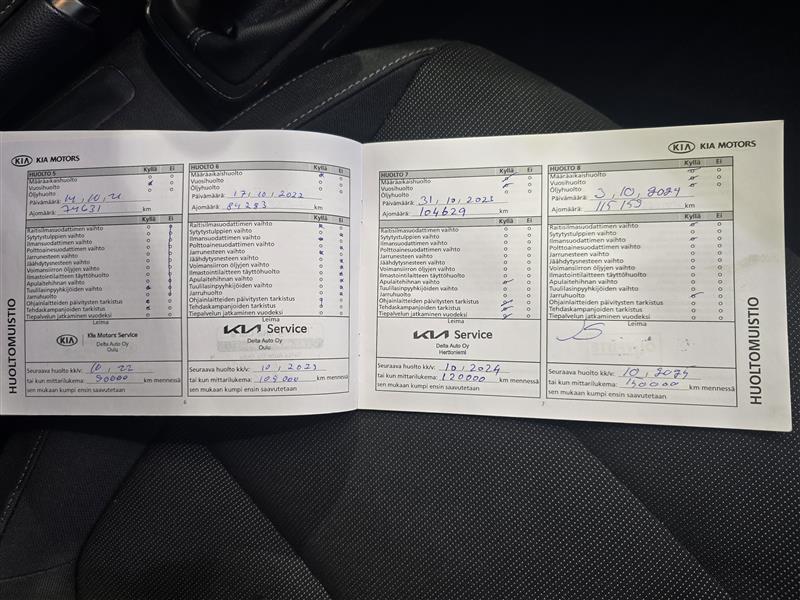 KIA KIA MOTORS
HUOLTOMUISTIO
HUOLTO 5 Kyllä Ei
Määräaikaishuolto
Vuosihuolto
Öljyhuolto
Päivämäärä:
Ajomäärä: 74631 km
Kyllä Ei
Raitisilmasuodattimen vaihto
Sytytystulppien vaihto
Ilmansuodattimen vaihto
Polttoainesuodattimen vaihto
Jarrunesteen vaihto
Jäähdytysnesteen vaihto
Voimansiirron öljyjen vaihto
Ilmastointilaitteen täyttöhuolto
Apulaitehihnan vaihto
Tuulilasinpyyhkijöiden vaihto
Jarruhuolto
Ohjainlaitteiden päivitysten tarkistus
Tehdaskampanjoiden tarkistus
Tiepalvelun jatkaminen vuodeksi
Leima
KIA Kia Motors Service
Delta Auto Oy
Oulu
Seuraava huolto kk/v: 10, 22
tai kun mittarilukema: 90000 km mennessä
sen mukaan kumpi ensin saavutetaan
HUOLTO 6 Kyllä Ei
Määräaikaishuolto
Vuosihuolto
Öljyhuolto
Päivämäärä: 17, 10, 2022
Ajomäärä: 84283 km
Kyllä Ei
Raitisilmasuodattimen vaihto
Sytytystulppien vaihto
Ilmansuodattimen vaihto
Polttoainesuodattimen vaihto
Jarrunesteen vaihto
Jäähdytysnesteen vaihto
Voimansiirron öljyjen vaihto
Ilmastointilaitteen täyttöhuolto
Apulaitehihnan vaihto
Tuulilasinpyyhkijöiden vaihto
Jarruhuolto
Ohjainlaitteiden päivitysten tarkistus
Tehdaskampanjoiden tarkistus
Tiepalvelun jatkaminen vuodeksi
Leima
KIA Service
Delta Auto Oy
Oulu
Seuraava huolto kk/v: 10, 2023
tai kun mittarilukema: km mennessä
sen mukaan kumpi ensin saavutetaan
6
KIA KIA MOTORS
HUOLTO 7 Kyllä Ei
Määräaikaishuolto
Vuosihuolto
Öljyhuolto
Päivämäärä: 31, 10, 2023
Ajomäärä: 104629 km
Kyllä Ei
Raitisilmasuodattimen vaihto
Sytytystulppien vaihto
Ilmansuodattimen vaihto
Polttoainesuodattimen vaihto
Jarrunesteen vaihto
Jäähdytysnesteen vaihto
Voimansiirron öljyjen vaihto
Ilmastointilaitteen täyttöhuolto
Apulaitehihnan vaihto
Tuulilasinpyyhkijöiden vaihto
Jarruhuolto
Ohjainlaitteiden päivitysten tarkistus
Tehdaskampanjoiden tarkistus
Tiepalvelun jatkaminen vuodeksi
Leima
KIA Service
Delta Auto Oy
Herttoniemi
Seuraava huolto kk/v: 10, 2024
tai kun mittarilukema: 120000 km mennessä
sen mukaan kumpi ensin saavutetaan
HUOLTO 8 Kyllä Ei
Määräaikaishuolto
Vuosihuolto
Öljyhuolto
Päivämäärä: 3, 10, 2024
Ajomäärä: 115 153 km
Kyllä Ei
Raitisilmasuodattimen vaihto
Sytytystulppien vaihto
Ilmansuodattimen vaihto
Polttoainesuodattimen vaihto
Jarrunesteen vaihto
Jäähdytysnesteen vaihto
Voimansiirron öljyjen vaihto
Ilmastointilaitteen täyttöhuolto
Apulaitehihnan vaihto
Tuulilasinpyyhkijöiden vaihto
Jarruhuolto
Ohjainlaitteiden päivitysten tarkistus
Tehdaskampanjoiden tarkistus
Tiepalvelun jatkaminen vuodeksi
Leima
Seuraava huolto kk/v: 10, 2025
tai kun mittarilukema: km mennessä
sen mukaan kumpi ensin saavutetaan
7
HUOLTOMUISTIO